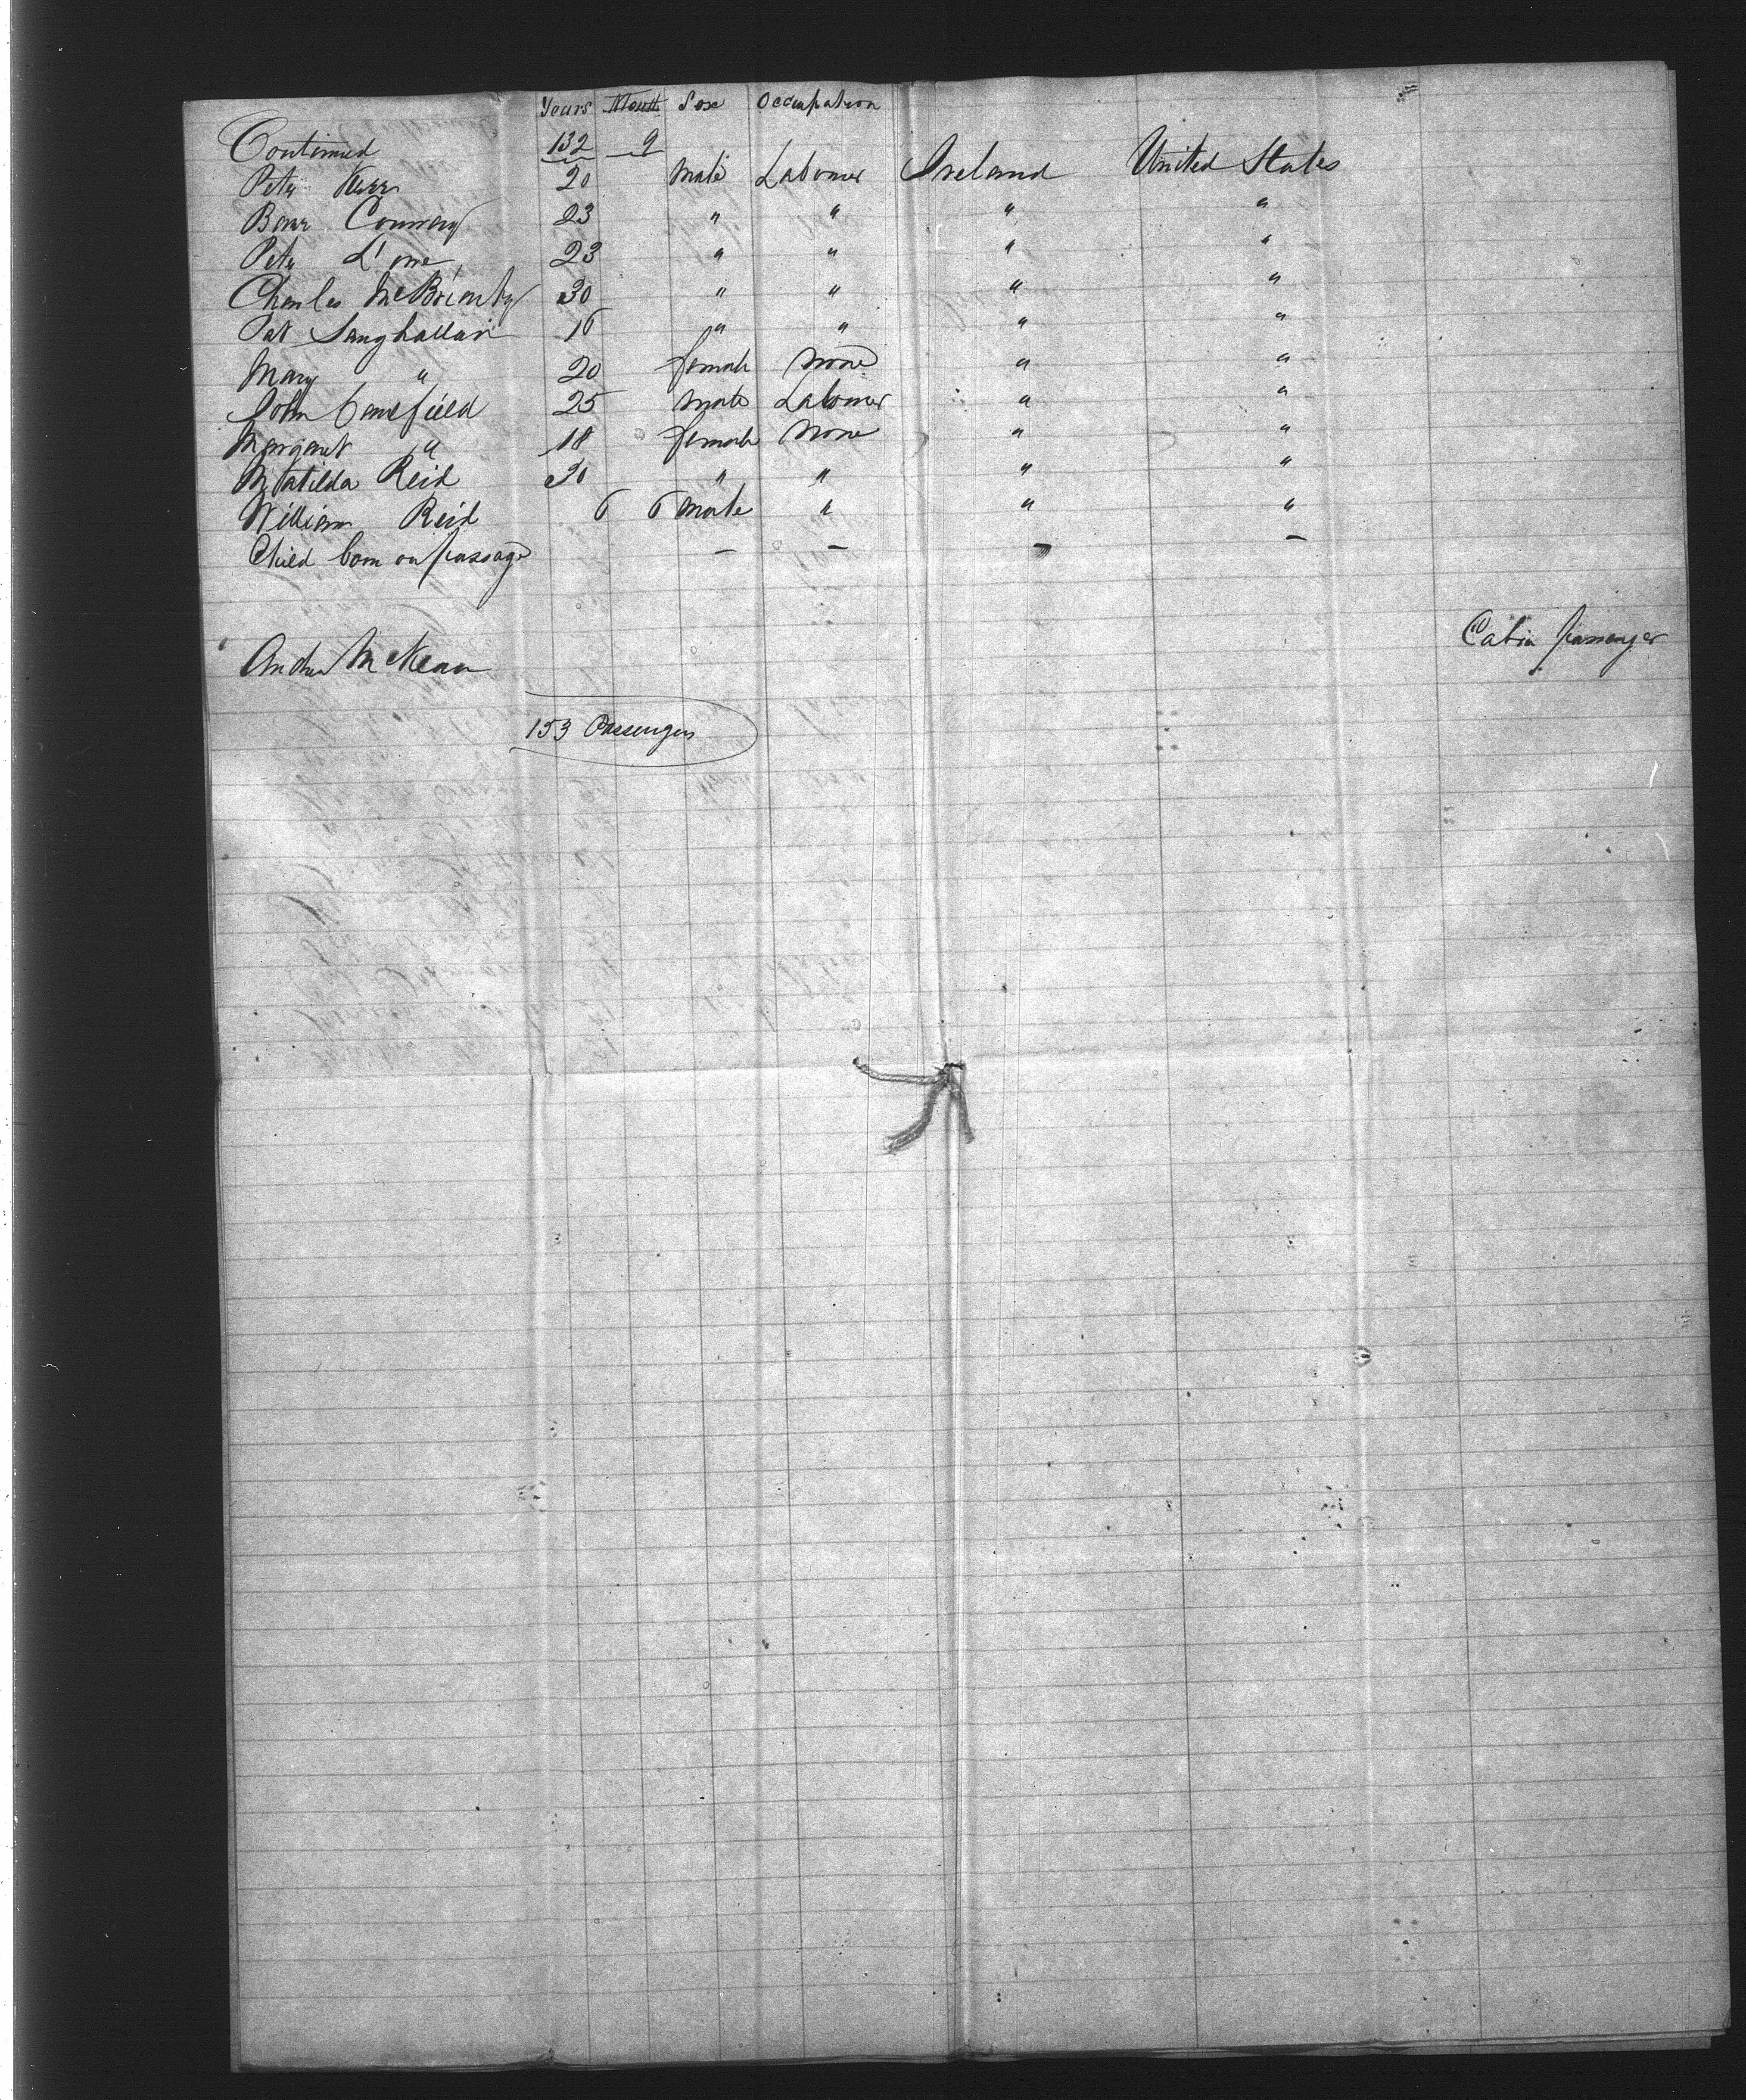 Years Month Sex Occupation
Continued 132 9
Peter Kerr 20 Male Labourer Ireland United States
Conway 23 " " " "
Peter 23 " " " "
Charles 30 " " " "
Pat 16 " " " "
Mary " 20 female None " "
John Canefield 25 Male Labourer " "
Margaret " 18 female None " "
Matilda Reid 30 " " " "
William Reid 6 6 male " " "
Child born on passage — — — —
Andrew McKean Cabin passenger
153 Passengers